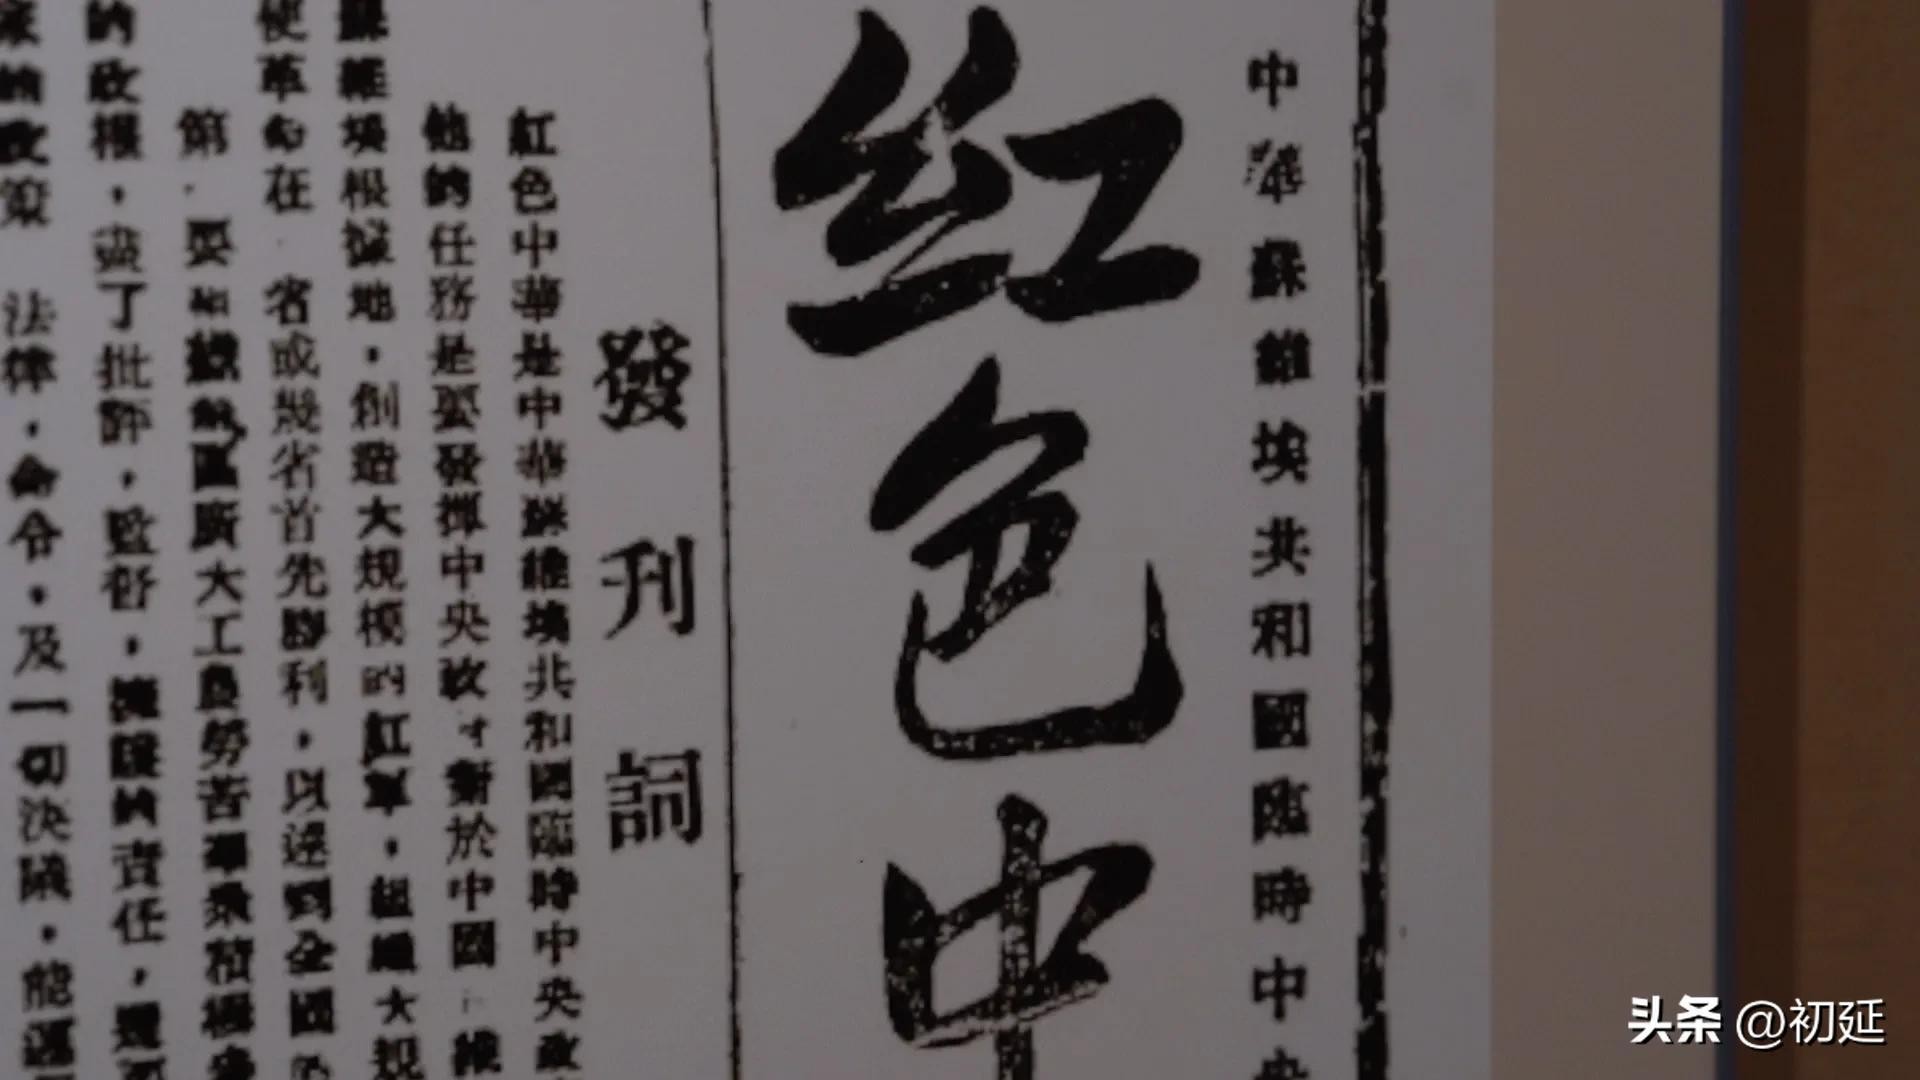 中華蘇維埃共和國臨時中央
紅色中
發刊詞
紅色中華是中華蘇維埃共和國臨時中央政
他的任務是要發揮中央政 於中國 維
蘇維埃根據地，創造大規模的紅軍，組織大規
使革命在 省或幾省首先勝利，以達到全國的
第 要組織蘇區廣大工農勞苦羣衆積極
的政權，盡了批評，監督，擁護的責任，還
的政策 法律，命令，及一切決議，能運
头条 @初延